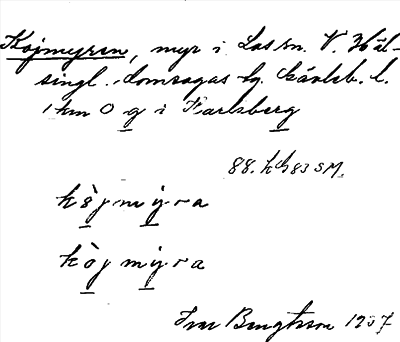 Kojmyren, myr i Los sn. V. Häl-
singl. domsagas tg. Gävleb. l.
1 km O g i Karlsberg
88.
kòjmỳra
kòjmỳra
Ivar Bengtsson 1937